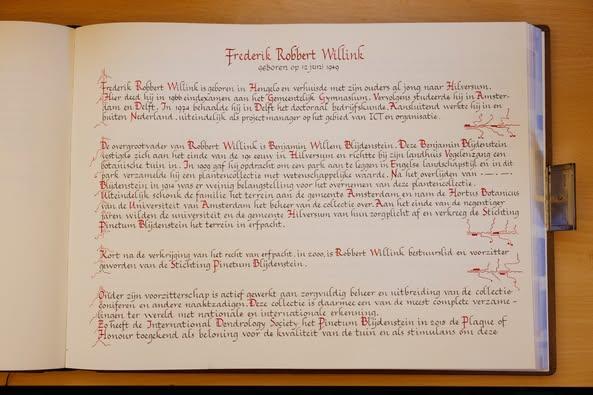 Frederik Robbert Willink
geboren op 12 juni 1949
Frederik Robbert Willink is geboren in Hengelo en verhuisde met zijn ouders al jong naar Hilversum.
Hier deed hij in 1966 eindexamen aan het Gemeentelijk Gymnasium. Vervolgens studeerde hij in Amster-
dam en Delft. In 1974 behaalde hij in Delft het doctoraal bedrijfskunde. Aansluitend werkte hij in en
buiten Nederland, uiteindelijk als projectmanager op het gebied van ICT en organisatie.
De overgrootvader van Robbert Willink is Benjamin Willem Blijdenstein. Deze Benjamin Blijdenstein
vestigde zich aan het einde van de 19e eeuw in Hilversum en richtte bij zijn landhuis Vogelenzang een
botanische tuin in. In 1909 gaf hij opdracht om een park aan te leggen in Engelse landschapstijl en in dit
park verzamelde hij een plantencollectie met wetenschappelijke waarde. Na het overlijden van -·-·-
Blijdenstein in 1914 was er weinig belangstelling voor het overnemen van deze plantencollectie.
Uiteindelijk schonk de familie het terrein aan de gemeente Amsterdam en nam de Hortus Botanicus
van de Universiteit van Amsterdam het beheer van de collectie over. Aan het einde van de negentiger
jaren wilden de universiteit en de gemeente Hilversum van hun zorgplicht af en verkreeg de Stichting
Pinetum Blijdenstein het terrein in erfpacht.
Kort na de verkrijging van het recht van erfpacht, in 2000, is Robbert Willink bestuurslid en voorzitter
geworden van de Stichting Pinetum Blijdenstein.
Onder zijn voorzitterschap is actief gewerkt aan zorgvuldig beheer en uitbreiding van de collectie
coniferen en andere naaktzadigen. Deze collectie is daarmee een van de meest complete verzame-
lingen ter wereld met nationale en internationale erkenning.
Zo heeft de International Dendrology Society het Pinetum Blijdenstein in 2018 de Plaque of
Honour toegekend als beloning voor de kwaliteit van de tuin en als stimulans om deze